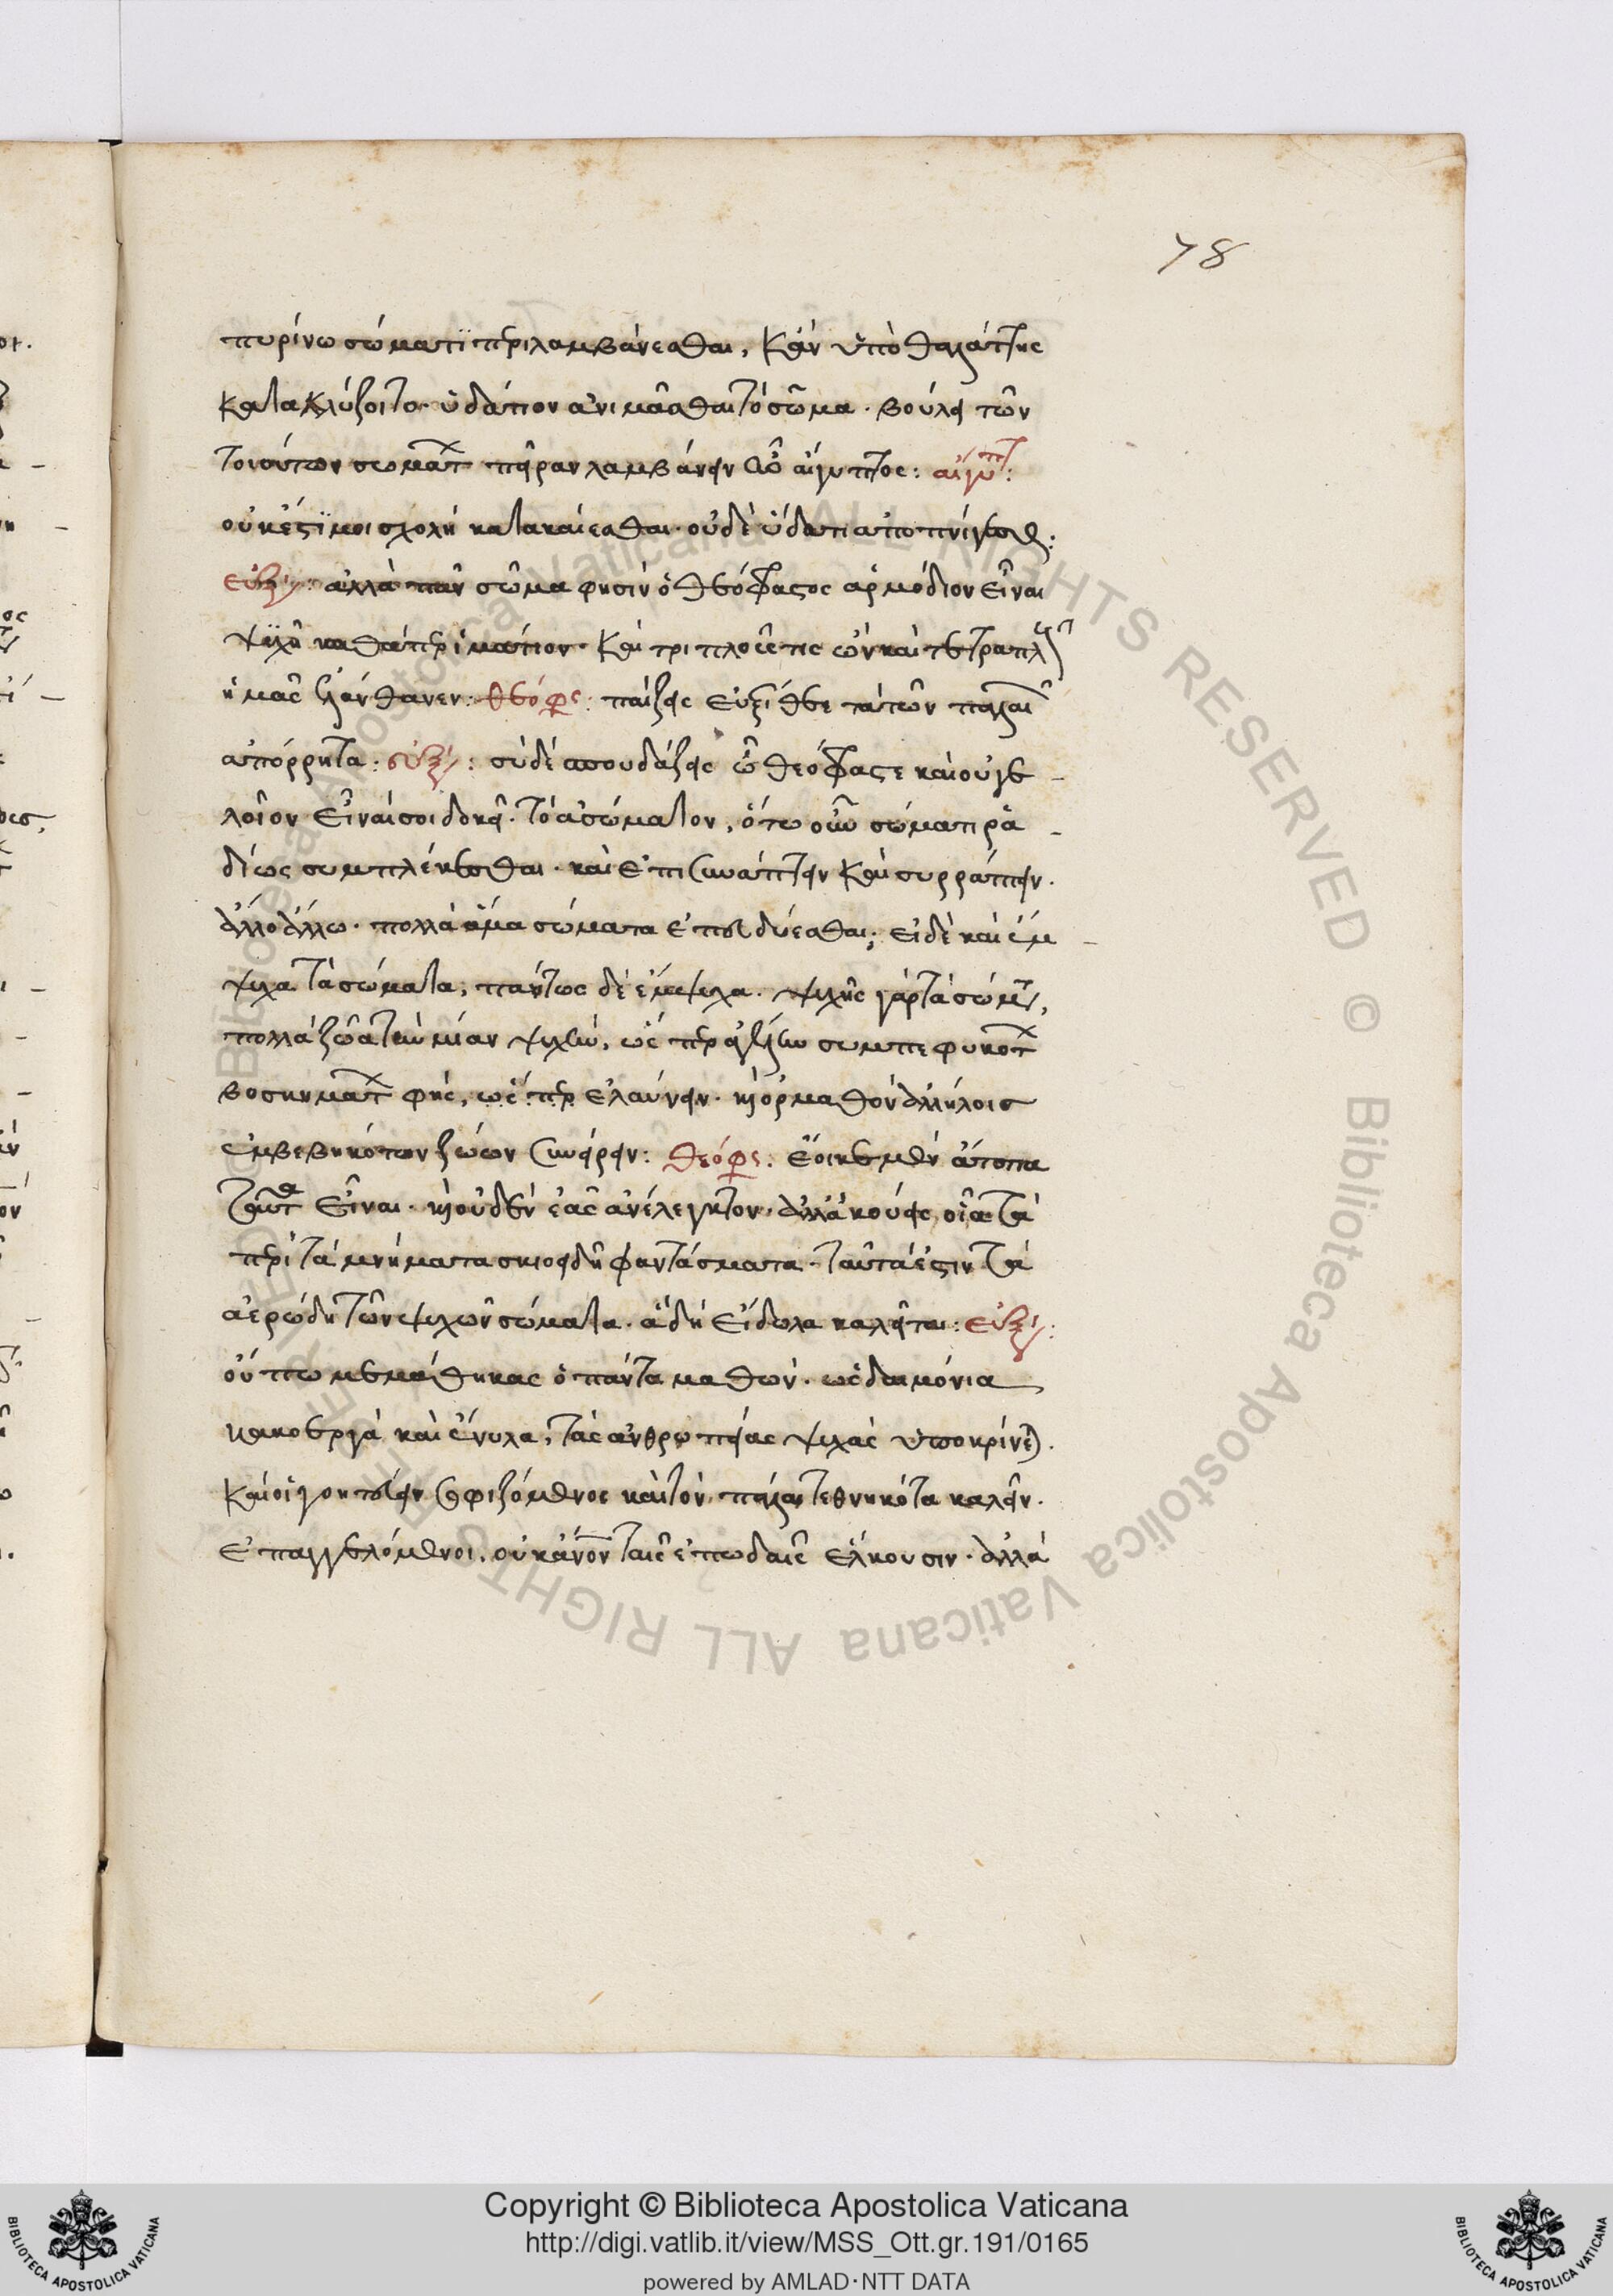 78
πυρίνω σώματι περιλαμβάνεσθαι, κἂν ὑπὸ θαλάττης
κατακλύζοιτο· ὑδάτιον ἀνιμᾶσθαι τὸ σῶμα· βούλει τῶν
τοιούτων σωμάτων πεῖραν λαμβάνειν ὦ αἴγυπτος: αἰγυπτ:
οὐκ ἔστι μοι σχολὴ κατακαίεσθαι· οὐδὲ ὕδατι ἀποπνίγεσθαι:
εὐξί: ἀλλὰ πᾶν σῶμα φησὶν ὁ θεόφραστος ἁρμόδιον εἶναι
ψυχῆ καθάπερ ἱμάτιον· καὶ τριπλοῦς τις ὢν καὶ τετραπλοῦς
ἡμᾶς ἐλάνθανεν: θεόφρς: παίζεις εὐξίθεε τὰ τῶν παλαιῶν
ἀπόρρητα: εὐξί: σὺ δὲ σπουδάζεις ὦ θεόφραστε καὶ οὐ γε
λοῖον εἶναί σοι δοκεῖ· τὸ ἀσώματον, ὅτω οὖν σώματι ῥα
δίως συμπλέκεσθαι· καὶ ἐπισυνάπτειν καὶ συρράπτειν·
ἄλλο ἄλλω· πολλὰ ἅμα σώματα ἐπενδύεσθαι; εἰ δὲ καὶ ἔμ
ψυχα τὰ σώματα; πάντως δὲ ἔμψυχα· ψυχῆς γὰρ τὰ σώματα,
πολλὰ ζῶα τὴν μίαν ψυχὴν, ὥσπερ ἀγέλην συμπεφυκότων
βοσκημάτων φὴς, ὥσπερ ἐλαύνειν· καὶ ὁρμαθὸν ἀλλήλοις
ἐμβεβηκότων ζώων συνείρειν: θεόφρς: ἔοικε μὲν ἄτοπα
ταῦτα εἶναι· καὶ οὐδὲν ἐᾶς ἀνέλεγκτον· ἀλλ' ἀκούεις οἷα τὰ
περὶ τὰ μνήματα σκιοειδῆ φαντάσματα· ταῦτά ἐστιν τὰ
ἀερώδη τῶν ψυχῶν σώματα· ἃ δὴ εἴδωλα καλεῖται: εὐξί:
οὔπω μεμάθηκας ὁ πάντα μαθών· ὡς δαιμόνια
κακοεργὰ καὶ ἔνυλα; τὰς ἀνθρωπείας ψυχὰς ὑποκρίνεται·
καὶ οἱ γοητείειν σοφιζόμενος καὶ τὸν πάλαι τεθνηκότα καλεῖν·
ἐπαγγελόμενοι, οὐκ ἄνον ταῖς ἐπωδαῖς ἕλκουσιν· ἀλλὰ
Copyright © Biblioteca Apostolica Vaticana
http://digi.vatlib.it/view/MSS_Ott.gr.191/0165
powered by AMLAD·NTT DATA